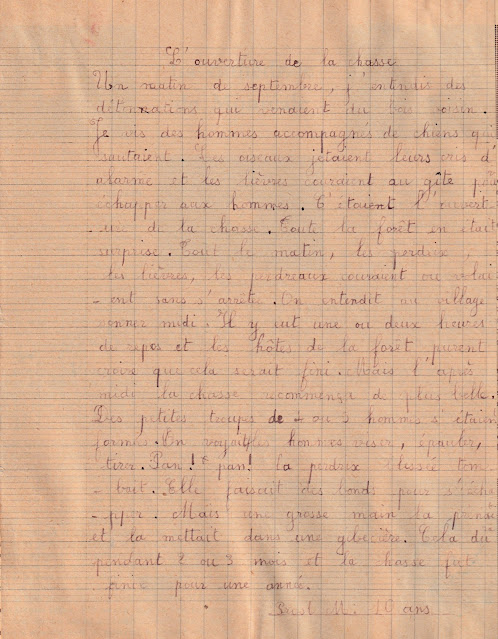 L'ouverture de la chasse
Un matin de septembre, j'entendis des
détonnations qui venaient du bois voisin.
Je vis des hommes accompagnés de chiens qui
sautaient. Les oiseaux jetaient leurs cris d'
alarme et les lièvres couraient au gîte pour
échapper aux hommes. C'étaient l'ouvert-
ure de la chasse. Toute la forêt en était
surprise. Tout le matin, les perdrix,
les lièvres, les perdreaux couraient ou volai
-ent sans s'arrêter. On entendit au village
sonner midi. Il y eut une ou deux heures
de repos et les hôtes de la forêt purent
croire que cela serait fini. Mais l'après
midi la chasse recommença de plus belle.
Des petites troups de 4 ou 5 hommes s'étaien
formes. On voyait les hommes viser, épauler,
tirer. Pan! pan! la perdrix blessée tom
-bait. Elle faisait des bonds pour s'écha
-pper. Mais une grosse main la prenait
et la mettait dans une gibecière. Cela du
pendant 2 ou 3 mois et la chasse fut
finie pour une année.
M. 10 ans